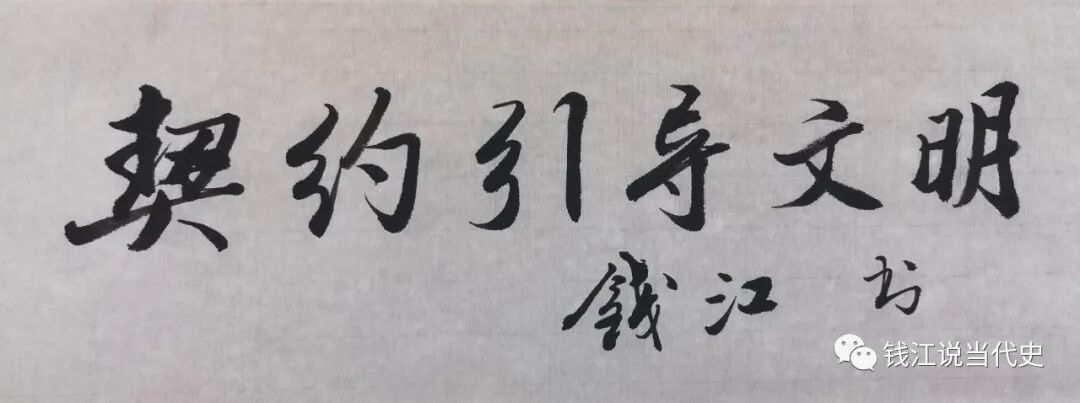 契约引导文明
錢江 书
钱江说当代史